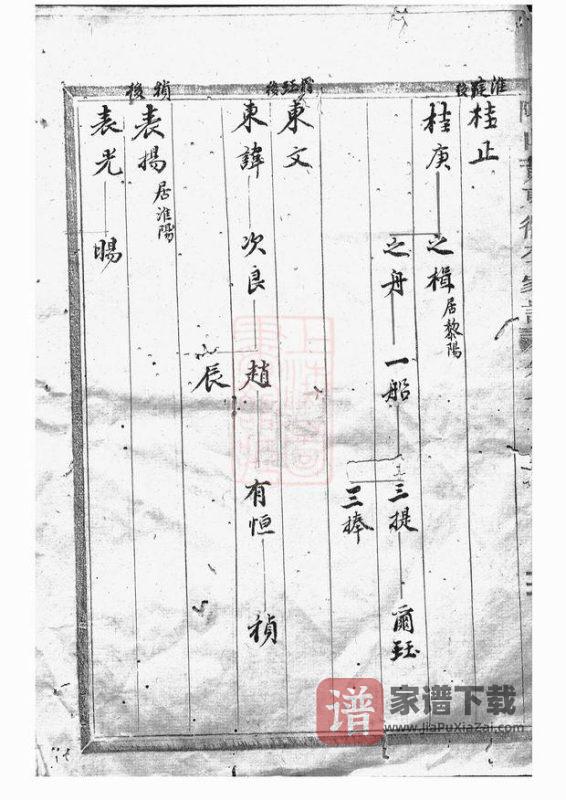 淮庭後
桂止
桂庚 之楫 居黎陽
之舟 一船 三提 爾珏
三捧
爾珏後
東文
東諱 次良 趙 有恒 楨
辰
楨後
表揚 居淮陽
表光 暘
谱 家谱下载
www.JiaPuXiaZai.com